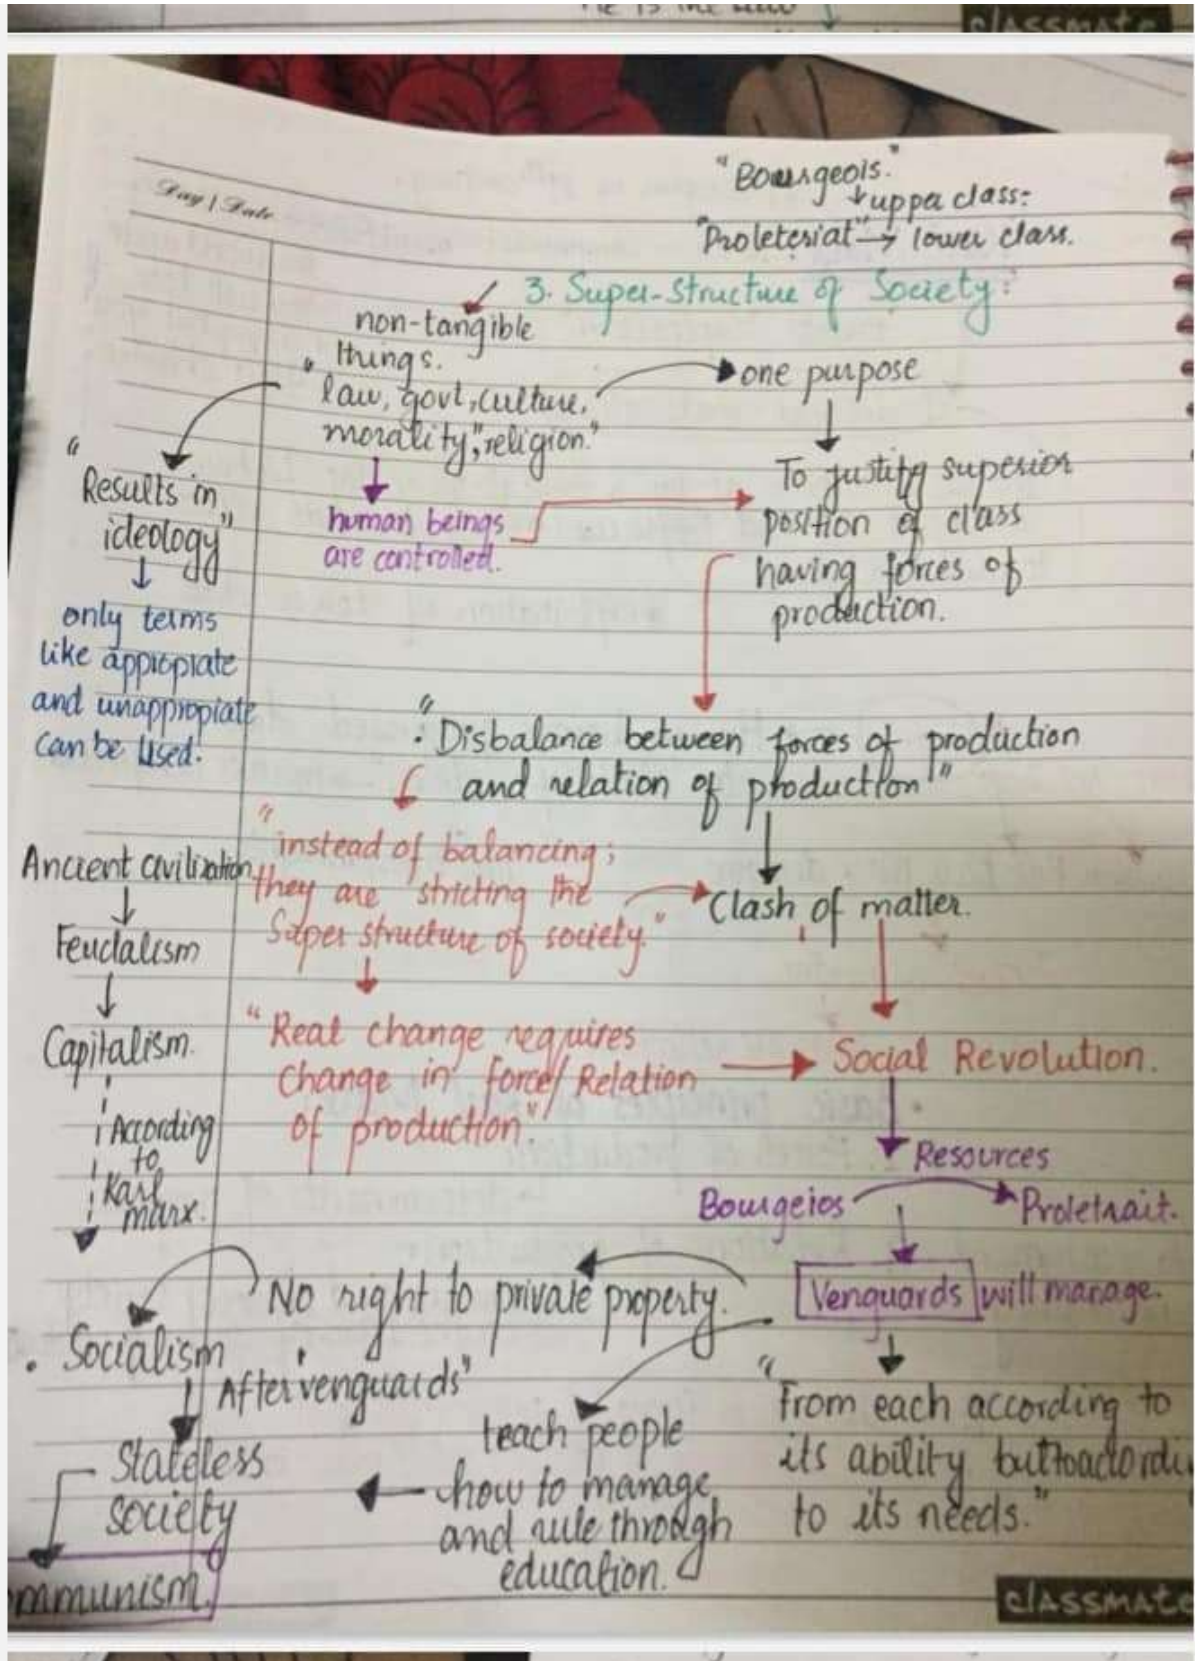 classmate
Day / Date
"Bourgeois."
uppa class:
"Proleteriat" → lower class.
3. Super-Structure of Society:
non-tangible
things.
"law, govt, culture,
morality", religion."
one purpose
To justify superior
position of class
having forces of
production.
human beings
are controlled.
"Results in
ideology"
only terms
like appropiate
and unappropiate
can be used.
"Disbalance between forces of production
and relation of production"
"instead of balancing;
they are stricting the
Super structure of society."
Clash of matter.
Ancient civilization
Feudalism
Capitalism.
According
to
Karl
marx.
"Real change requires
change in force/Relation
of production".
Social Revolution.
Resources
Bourgeios
Proletrait.
Venguards will manage.
No right to private property.
Socialism
After venguards"
Stateless
society
mmunism.
teach people
how to manage
and rule through
education.
"From each according to
its ability but to accordi
to its needs."
classmate